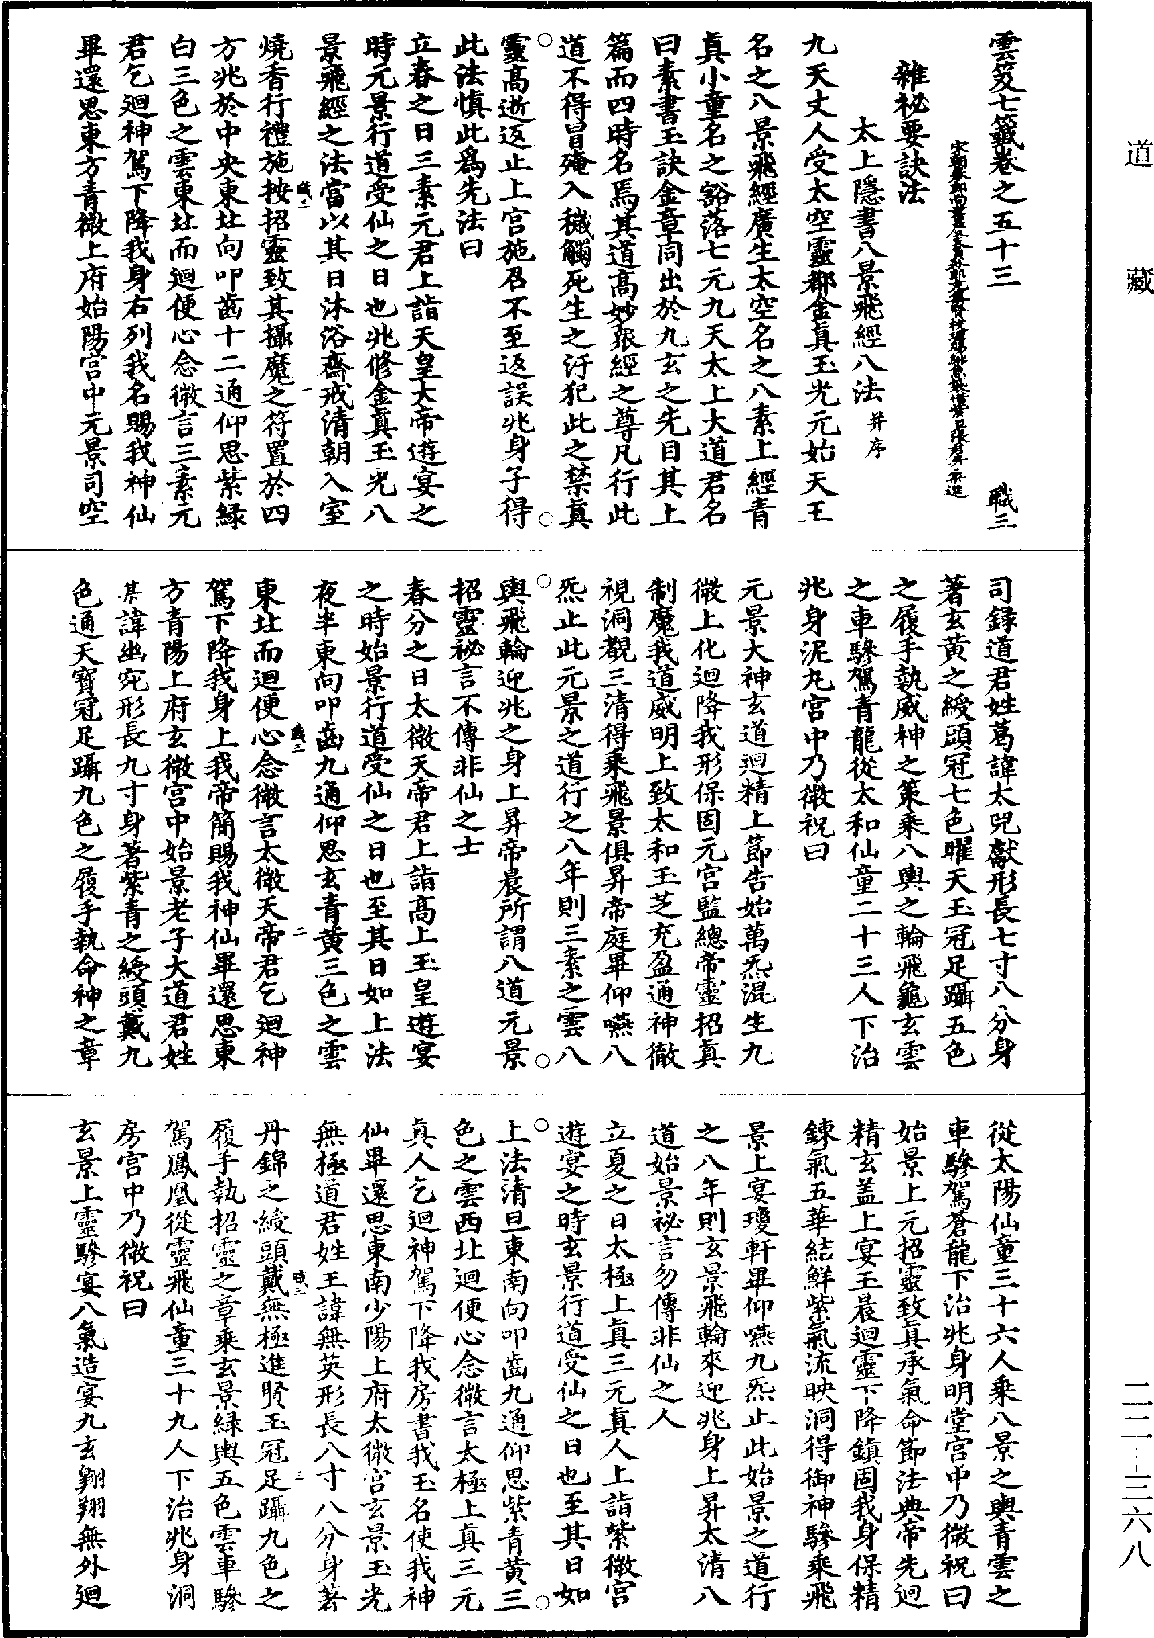 道藏
雲笈七籤卷之五十三　職三
雜祕要訣法
太上隱書八景飛經八法并序
九天丈人受太空靈都金真玉光元始天王
名之八景飛經廣生太空名之八素上經青
真小童名之豁落七元九天太上大道君名
曰素書玉訣金章同出於九玄之先目其上
篇而四時名焉其道高妙衆經之尊凡行此
道不得冒殗入穢觸死生之汙犯此之禁真
靈高逝返止上宮施召不至返誤兆身子得
此法慎此為先法曰
立春之日三素元君上詣天皇大帝遊宴之
時元景行道受仙之日也兆修金真玉光八
景飛經之法當以其日沐浴齋戒清朝入室
燒香行禮施按招靈致其攝魔之符置於四
方兆於中央東北向叩齒十二通仰思紫緑
白三色之雲東北而迴便心念微言三素元
君乞迴神駕下降我身右列我名賜我神仙
畢還思東方青微上府始陽宮中元景司空
司録道君姓葛諱太兕獻形長七寸八分身
著玄黃之綬頭冠七色曜天玉冠足躡五色
之履手執威神之策乘八輿之輪飛龜玄雲
之車驂駕青龍從太和仙童二十三人下治
兆身泥丸宮中乃微祝曰
元景大神玄道迴精上節告始萬炁混生九
微上化迴降我形保固元宮監總帝靈招真
制魔我道威明上致太和玉芝充盈通神徹
視洞觀三清得乘飛景俱昇帝庭畢仰嚥八
炁止此元景之道行之八年則三素之雲八
輿飛輪迎兆之身上昇帝晨所謂八道元景
招靈祕言不傳非仙之士
春分之日太微天帝君上詣高上玉皇遊宴
之時始景行道受仙之日也至其日如上法
夜半東向叩齒九通仰思玄青黃三色之雲
東北而迴便心念微言太微天帝君乞迴神
駕下降我身上我帝簡賜我神仙畢還思東
方青陽上府玄微宮中始景老子大道君姓
某諱幽宛形長九寸身著紫青之綬頭戴九
色通天寶冠足躡九色之履手執命神之章
從太陽仙童三十六人乘八景之輿青雲之
車驂駕蒼龍下治兆身明堂宮中乃微祝曰
始景上元招靈致真承氣命節法典帝先迴
精玄蓋上宴玉晨迴靈下降鎮固我身保精
鍊氣五華結鮮紫氣流映洞得御神驂乘飛
景上宴瓊軒畢仰嚥九炁止此始景之道行
之八年則玄景飛輪來迎兆身上昇太清八
道始景祕言勿傳非仙之人
立夏之日太極上真三元真人上詣紫微宮
遊宴之時玄景行道受仙之日也至其日如
上法清旦東南向叩齒九通仰思紫青黃三
色之雲西北迴便心念微言太極上真三元
真人乞迴神駕下降我房書我玉名使我神
仙畢還思東南少陽上府太微宮玄景玉光
無極道君姓王諱無英形長八寸八分身著
丹錦之綬頭戴無極進賢玉冠足躡九色之
履手執招靈之章乘玄景緑輿五色雲車驂
駕鳳凰從靈飛仙童三十九人下治兆身洞
房宮中乃微祝曰
玄景上靈驂宴八氣造宴九玄翱翔無外迴
二二-三六八